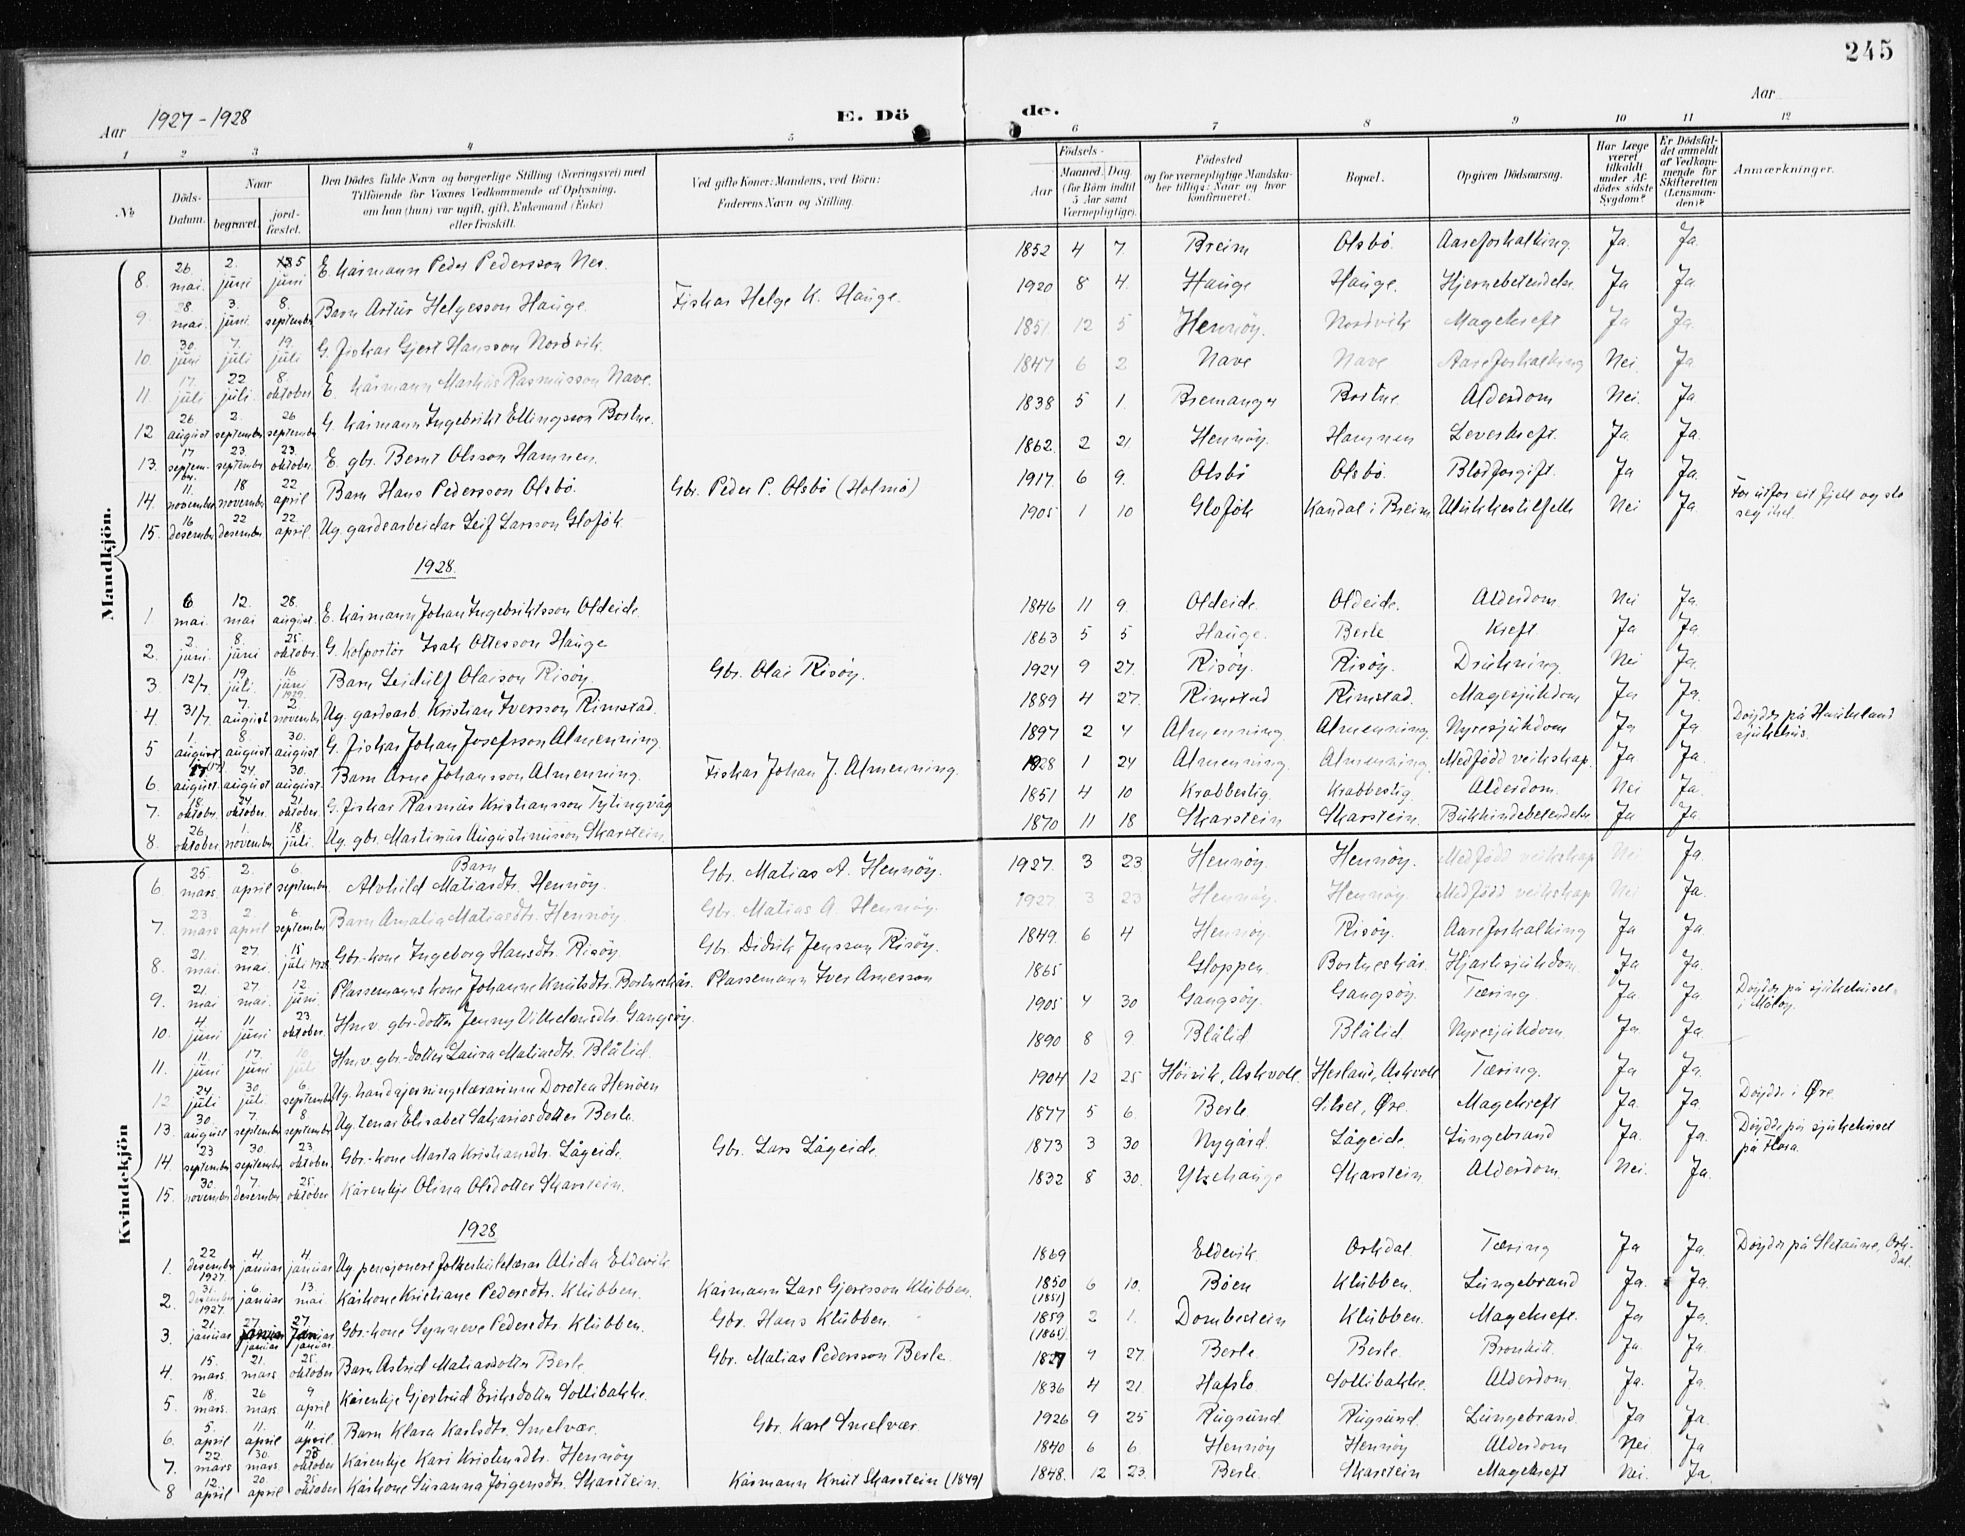 245
Aar 1927-1928
E. Dö de.
Aar
1 2 3 4 5 6 7 8 9 10 11 12
No
Döds-Datum.
Naar
begravet.
jord-fæstet.
Den Dödes fulde Navn og borgerlige Stilling (Næringsvei) med Tilföiende for Voxnes Vedkommende af Oplysning, om han (hun) var ugift, gift, Enkemand (Enke) eller fraskilt.
Ved gifte Koner: Mandens, ved Börn: Faderens Navn og Stilling.
Födsels-
Aar
Maaned. Dag.
(for Börn indtil 5 Aar samt Værnepligtige).
Födested og for værnepligtige Mandskaber tillige: Naar og hvor konfirmeret.
Bopæl.
Opgiven Dödsaarsag.
Har Læge været tilkaldt under Afdödes sidste Sygdom?
Er Dödsfaldet anmeldt af Vedkommende for Skifteretten (Lensmanden)?
Anmærkninger.
Mandkjön.
8. 26 mai. 2. juni 5 juni E. kårmann Peder Pedersson Nes. 1852 4 7. Breim Olsbö. Aareforkalking. Ja. Ja.
9. 28. mai. 3. juni. 8. september Barn Artur Helgesson Hauge. Fiskar Helge K. Hauge. 1920 8 4. Hauge Hauge. Hjernebetendelse Ja Ja
10. 30. juni 7. juli 19. juli G. fiskar Gjert Hansson Nordvik. 1851. 12 5 Hennöy. Nordvik Magekreft Ja Ja.
11. 17. juli 22 juli. 8. oktober. E. kårmann Markus Rasmusson Nave. 1847 6 2 Nave Nave Aareforkalking Nei. Ja
12 26. august 2. september 26 september G. kårmann Ingebrikt Ellingsson Bortne. 1838 5 1. Bremanger Bortne Alderdom Nei. Ja
13. 17 september. 23. september 23. oktober. E. gbr. Bernt Olsson Hamnen. 1862. 2 21 Hennöy. Hamnen Leverkreft. Ja Ja.
14. 11. november 18 november 22 april Barn Hans Pedersson Olsbö. Gbr. Peder P. Olsbö (Holmö) 1917. 6 9. Olsbö Olsbö. Blodforgift. Ja Ja.
15. 16 desember 22 desember 22 april. Ug. gardsarbeidar Leif Larsson Glofök 1905 1 10 Glofök Kandal i Breim Ulukkestilfelle Nei Ja. For utfor eit fjell og slo seg ihel.
1928.
1 6 mai. 12. mai 28. august. E. kårmann Johan Ingebriktsson Oldeide. 1846 11 9. Oldeide. Oldeide. Alderdom. Nei Ja.
2. 2. juni. 8. juni 25. oktober. G. kolportör Isak Ottesson Hauge 1863 5 5 Hauge. Berle Kreft. Ja Ja
3 12/7. 19. juli. 16. juni 1929. Barn Leidulf Olaison Risöy. Gbr. Olai Risöy. 1924 9 27. Risöy. Risöy. Drukning. Nei Ja.
4. 31/7. 7. august 2 november Ug. gardsarb. Kristian Iversson Rimstad. 1889 4 27. Rimstad Rimstad. Magesjukdom Ja Ja.
5 1. august 8. august 30. august G. fiskar Johan Josefsson Almenning. 1897 2 4 Almenning. Almenning. Nyresjukdom Ja Ja Döydde på Haukeland sjukehus.
6. august 24. august 30. august. Barn Arne Johansson Almenning. Fiskar Johan J. Almenning. 1928 1 24 Almenning. Almenning. Medfödd veikskap. Ja Ja
7. 18. oktober. 24 oktober. 21 oktober. G. fiskar Rasmus Kristiansson Tytingvåg 1851 4 10 Krabbestig. Krabbestig. Alderdom. Nei Ja.
8. 26. oktober 1. november 18. juli. Ug. gbr. Martinus Augustinusson Skarstein. 1870 11 18 Skarstein Skarstein. Bukhindebetendelse Ja Ja.
Kvindekjön
6. 25. mars. 2. april 6. september Barn Alvhild Matiasdtr. Hennöy. Gbr. Matias A. Hennöy. 1927. 3 23 Hennöy. Hennöy. Medfödd veikskap Nei Ja.
7. 23. mars 2. april 6. september Barn Amalia Matiasdtr. Hennöy. Gbr. Matias A. Hennöy. 1927. 3 23 Hennöy. Hennöy. Medfödd veikskap Nei Ja.
8. 21. mai. 27. mai. 15 juli 1928 Gbr.-kone Ingeborg Hansdtr. Risöy. Gbr. Didrik Jensson Risöy. 1849. 6 4 Hennöy. Risöy. Aareforkalking Ja Ja
9. 21 mai 27. mai. 12. juni. Plassemanns kone Johanne Knutsdtr. Bortneskår. Plassemann Iver Arnesson 1865 Gloppen. Bortneskår. Hjartesjukdom. Ja Ja.
10. 4. juni 11. juni 23. oktober. Hmv. gbr-dotter Jenny Vilhelmsdtr. Gangsöy. 1905 4 30 Gangsöy. Gangsöy. Tæring. Ja. Ja Döydde på sjukehuset i Måløy.
11. 11. juni 17. juni 10 juli Hmv. gbr-dotter Laura Matiasdtr. Blålid. 1890 8 9. Blålid Blålid. Nyresjukdom Ja. Ja.
12 24. juli 30. juli 6. september Ug. handgjerningslærarinne Dorotea Henöen 1904 12 25 Höivik, Askvoll. Hesland, Askvoll Tæring. Ja Ja.
13. 30. august 7. september 8. september Ug. tenar Elisabet Sakariasdotter Berle. 1877 5 6. Berle Silset, Øre. Magekreft Ja. Ja. Döydde i Øre.
14. 23 september 30. september 23. oktober. Gbr.-kone Marta Kristiansdtr. Lågeide. Gbr. Lars Lågeide. 1873 3 30 Nygård. Lågeide. Lungebrand Ja. Ja. Döydde på sjukehuset på Florø.
15. 30. november 7. desember 25. oktober Kårenkje Olina Olsdotter Skarstein. 1832 8 30. Ytrehauge Skarstein Alderdom. Nei. Ja.
1928
1. 22 desember 1927. 4. januar 4. januar Ug. pensjonert folkeskulelærar Alida Eldevik 1869 Eldevik Orkdal. Tæring Ja Ja. Döydde på Sletaune, Orkdal.
2. 31. desember 1927. 6. januar 13. mai Kårkone Kristiane Pedersdtr. Klubben. Kårmann Lars Gjertsson Klubben. 1850 (1851) 6 10. Böen Klubben. Lungebrand Ja. Ja.
3. 21. januar 27. januar 27. januar. Gbr.-kone Synneve Pedersdtr. Klubben. Gbr. Hans Klubben. 1859 2 1. Dombestein Klubben. Magekreft. Ja Ja.
4. 15. mars. 21. mars. 25. oktober Barn Astrid Matiasdotter Berle. Gbr. Matias Pedersson Berle. 27. Berle. Berle. Bronkit. Ja. Ja.
5. 18. mars. 26 mars. 9 april Kårenkje Gjertrud Eriksdotter Sollibakke. 1836 4 21. Hafslo. Sollibakke. Alderdom. Ja. Ja.
6. 5. april 11. april 11. april. Barn Klara Karlsdtr. Smelvær. Gbr. Karl Smelvær. 1926 9 25 Rugsund. Rugsund. Lungebrand. Ja Ja.
7. 22. mars 30. mars. oktober Kårenkje Kari Kristensdtr. Hennöy 1840 6 6. Hennöy Hennöy Alderdom Nei Ja
8 12. april 20. april 25. oktober Kårkone Susanna Jörgensdtr. Skarstein. Kårmann Knut Skarstein (1849) 1848. 12 23. Berle. Skarstein Magekreft Nei. Ja.